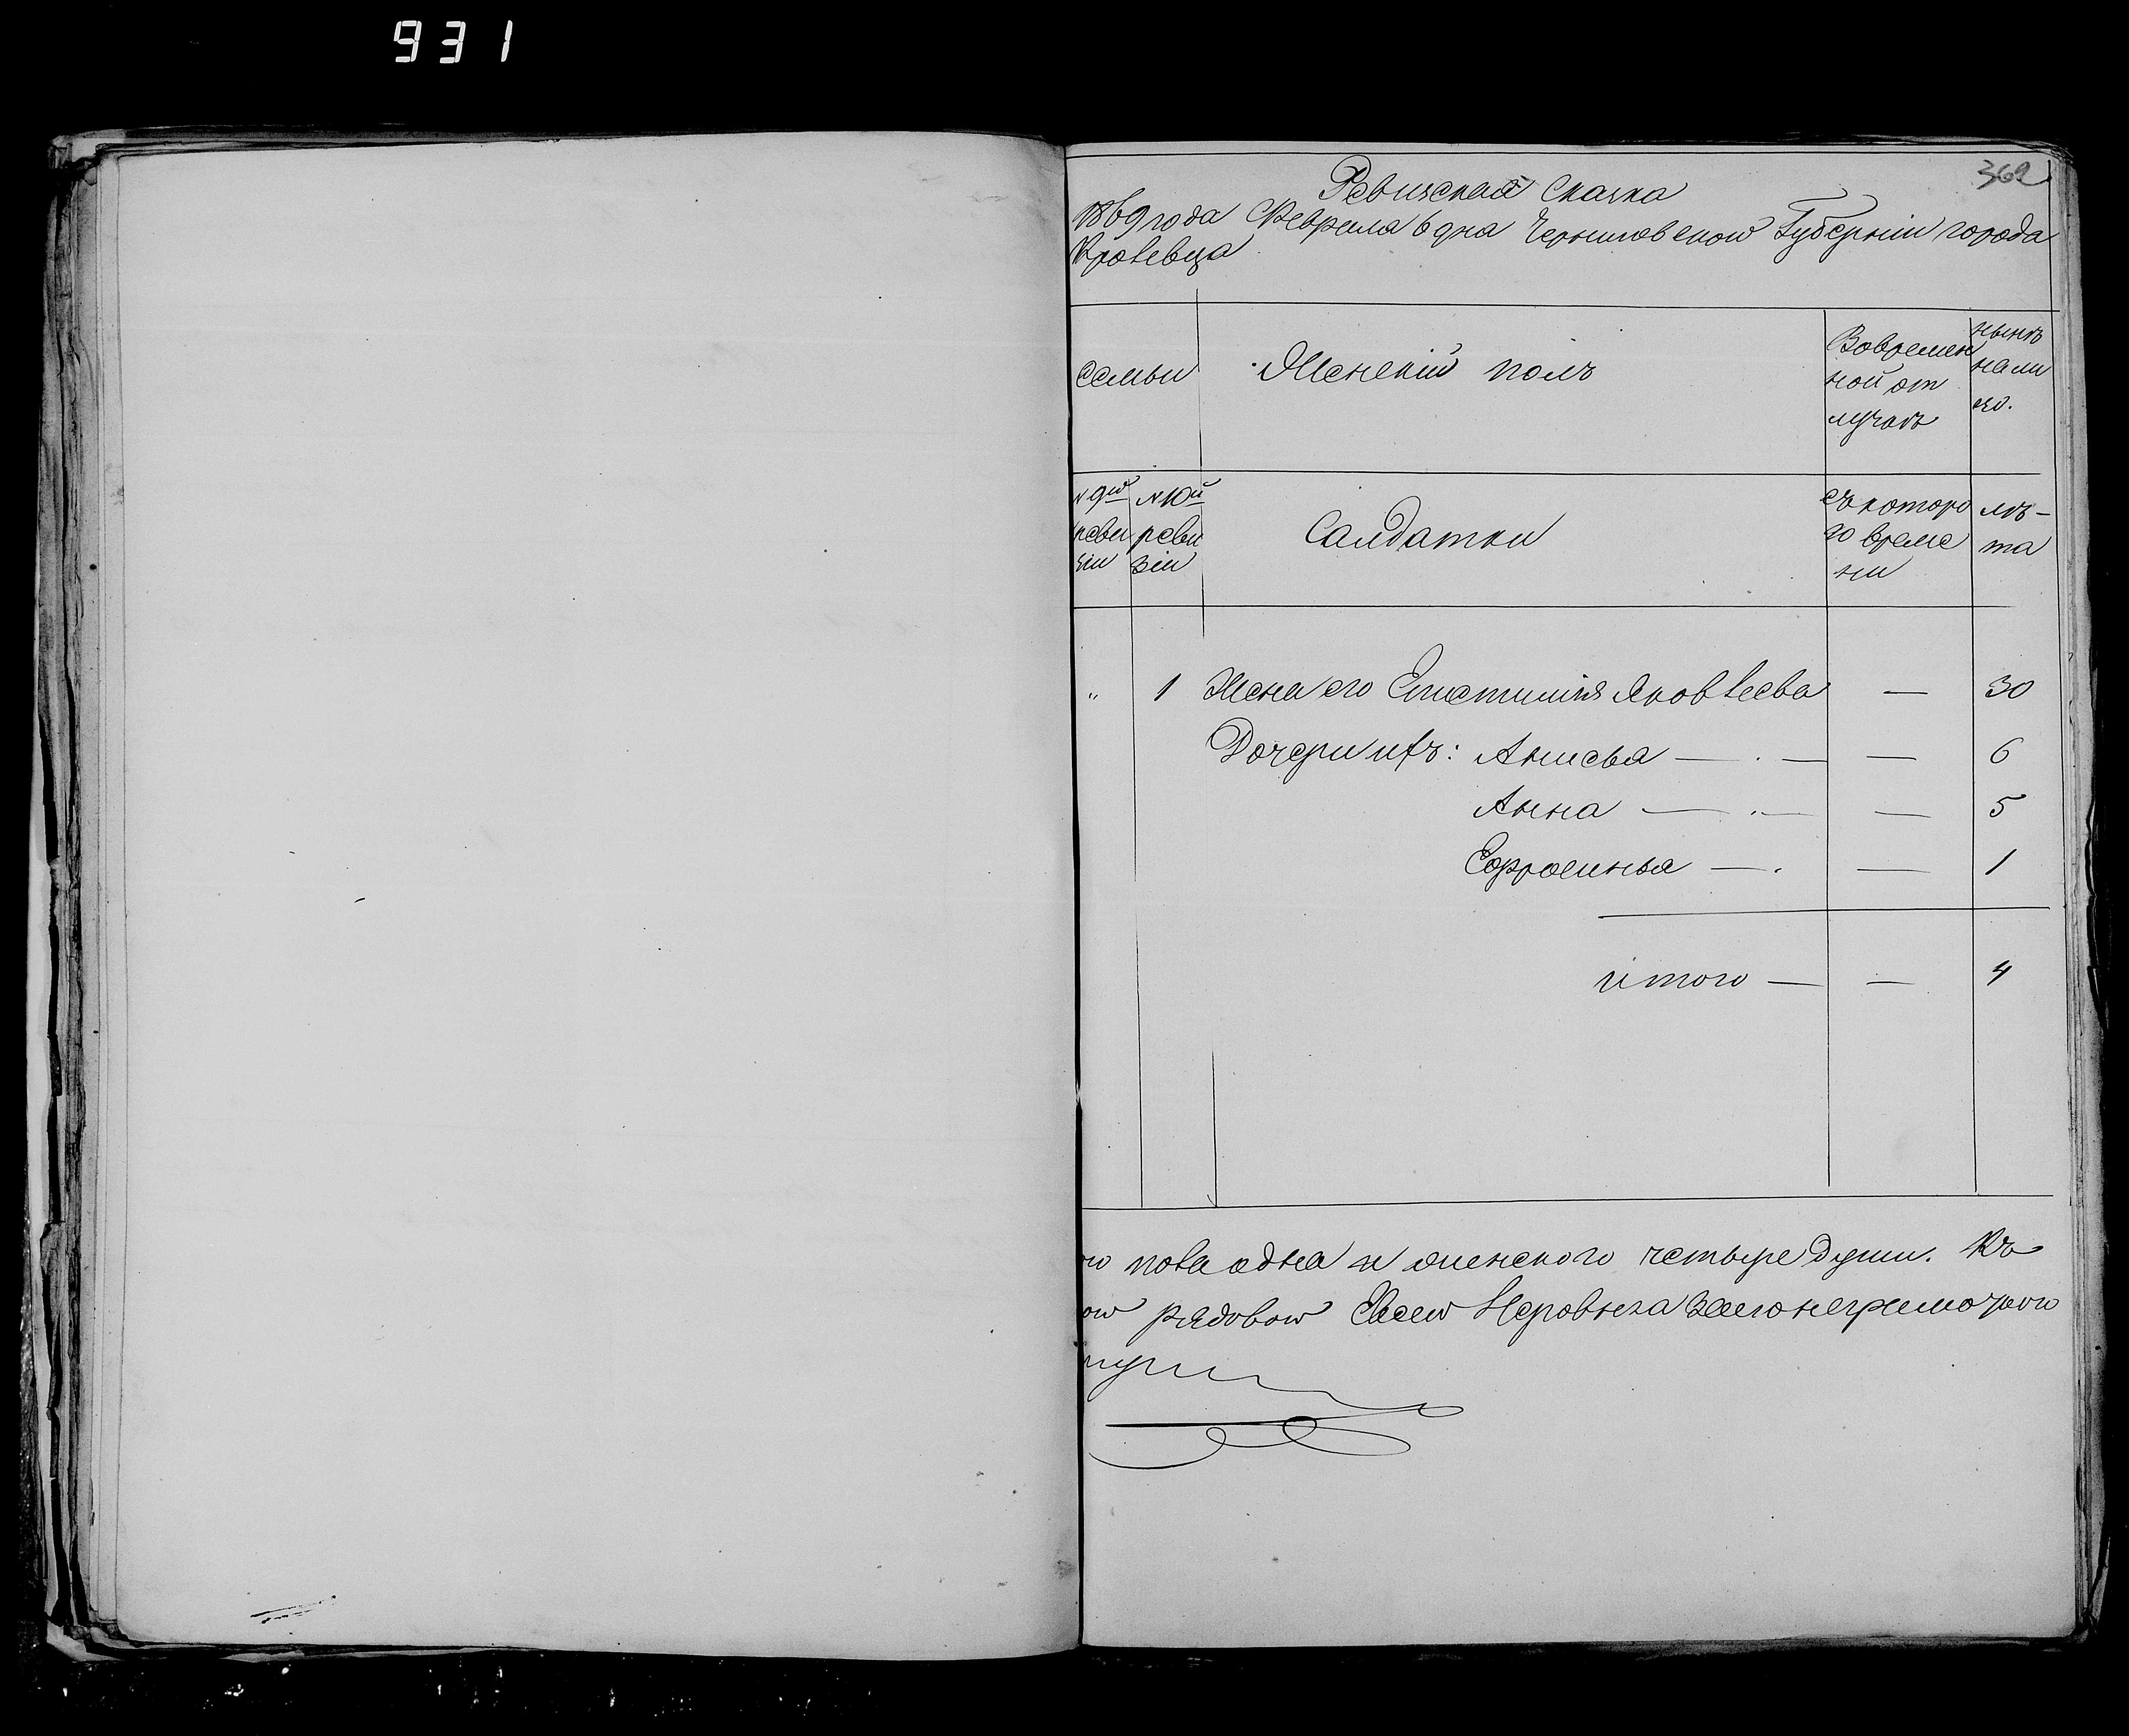 931
362
Ревизская Сказка
1869 года Февраля 6 дна Черниговской Губерніи города
Кролевца
семьи
Женскій полъ
Вовремен
ной от
лучкѣ
нынѣ
нали
цо.
№ 9й
реви
зіи
№ 10й
реви
зіи
Салдатки
съ которо
го време
ни
лѣ-
та
„ 1 Жена его Епистимія Яковлева — 30
Дочери ихъ: Анисья — . — — 6
Анна — . — — 5
Ефросинья — . — 1
итого — — 4
го пола одна и женского четыре души. Къ
ой рядовой Евсей неграмотного